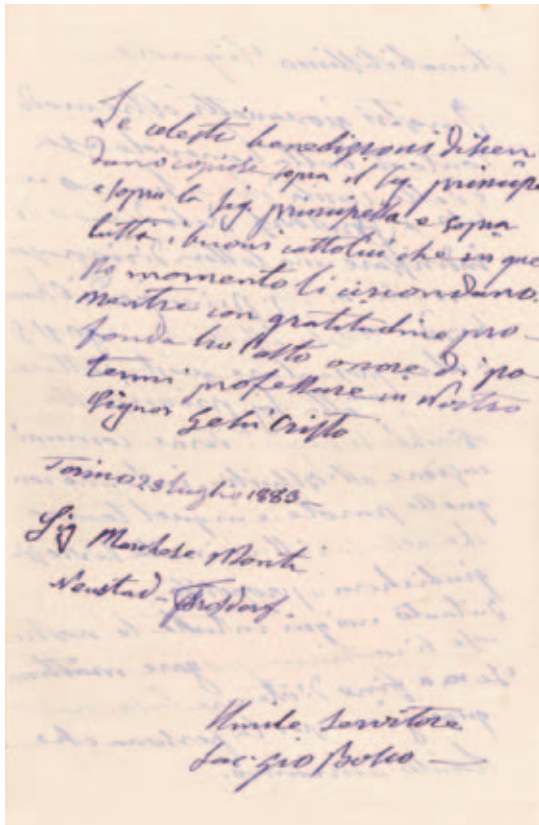 Le celesti benedizioni discen
dano copiose sopra il Sig. principe
e sopra la Sig. principessa e sopra
tutti i buoni cattolici che in que
sto momento li circondano.
mentre con gratitudine pro-
fonda ho l'alto onore di po
termi professare in Nostro
Signor Gesù Cristo
Torino 23 luglio 1883 -
Sig Marchese Monti
Neustad - Frosdorf.
Umile Servitore
Sac. Gio Bosco